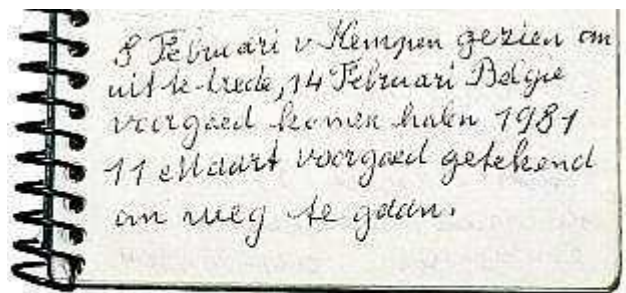 8 Februari v Kempen gezien om
uit te trede, 14 Februari Belgie
voorgoed komen halen 1981
11 Maart voorgoed getekend
om weg te gaan.